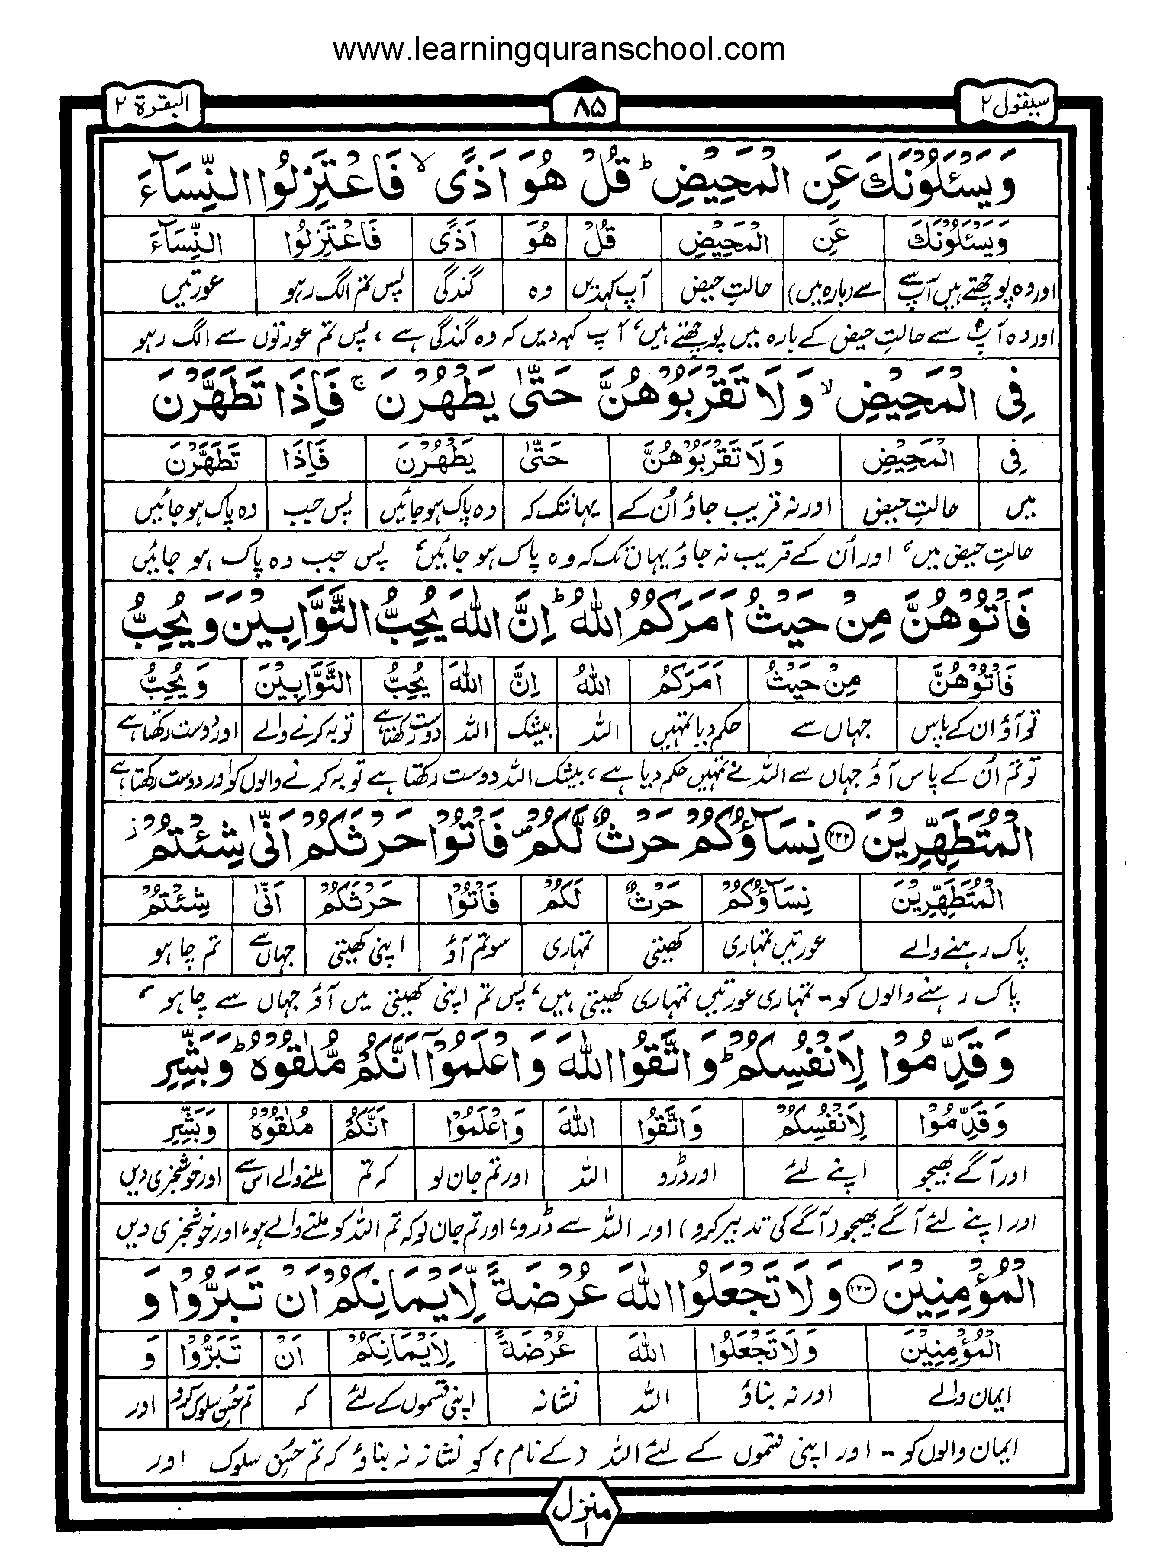 www.learningquranschool.com
سیقول ۲
۸۵
البقرة ۲
وَيَسْئَلُوْنَكَ عَنِ الْمَحِيْضِ ؕ قُلْ هُوَ اَذًى ۙ فَاعْتَزِلُوا النِّسَآءَ
وَيَسْئَلُوْنَكَ عَنِ الْمَحِيْضِ قُلْ هُوَ اَذًى فَاعْتَزِلُوا النِّسَآءَ
اور وہ پوچھتے ہیں آپ سے سے (بارہ میں) حالتِ حیض آپ کہدیں وہ گندگی پس تم الگ رہو عورتیں
اور وہ آپؐ سے حالتِ حیض کے بارہ میں پوچھتے ہیں، آپ کہہ دیں کہ وہ گندگی ہے، پس تم عورتوں سے الگ رہو
فِي الْمَحِيْضِ ۙ وَلَا تَقْرَبُوْهُنَّ حَتّٰى يَطْهُرْنَ ۚ فَاِذَا تَطَهَّرْنَ
فِي الْمَحِيْضِ وَلَا تَقْرَبُوْهُنَّ حَتّٰى يَطْهُرْنَ فَاِذَا تَطَهَّرْنَ
میں حالتِ حیض اور نہ قریب جاؤ اُن کے یہانتک کہ وہ پاک ہو جائیں پس جب وہ پاک ہو جائیں
حالتِ حیض میں، اور اُن کے قریب نہ جاؤ یہاں تک کہ وہ پاک ہو جائیں، پس جب وہ پاک ہو جائیں
فَاْتُوْهُنَّ مِنْ حَيْثُ اَمَرَكُمُ اللّٰهُ ؕ اِنَّ اللّٰهَ يُحِبُّ التَّوَّابِيْنَ وَيُحِبُّ
فَاْتُوْهُنَّ مِنْ حَيْثُ اَمَرَكُمُ اللّٰهُ اِنَّ اللّٰهَ يُحِبُّ التَّوَّابِيْنَ وَيُحِبُّ
تو آؤ ان کے پاس جہاں سے حکم دیا تمہیں اللہ بیشک اللہ دوست رکھتا ہے توبہ کرنے والے اور دوست رکھتا ہے
تو تم اُن کے پاس آؤ جہاں سے اللہ نے تمہیں حکم دیا ہے، بیشک اللہ دوست رکھتا ہے توبہ کرنے والوں کو اور دوست رکھتا ہے
الْمُتَطَهِّرِيْنَ ۝۲۲۲ نِسَآؤُكُمْ حَرْثٌ لَّكُمْ ۪ فَاْتُوْا حَرْثَكُمْ اَنّٰى شِئْتُمْ ؗ
الْمُتَطَهِّرِيْنَ نِسَآؤُكُمْ حَرْثٌ لَكُمْ فَاْتُوْا حَرْثَكُمْ اَنّٰى شِئْتُمْ
پاک رہنے والے عورتیں تمہاری کھیتی تمہاری سو تم آؤ اپنی کھیتی جہاں سے تم چاہو
پاک رہنے والوں کو۔ تمہاری عورتیں تمہاری کھیتی ہیں، پس تم اپنی کھیتی میں آؤ جہاں سے چاہو،
وَقَدِّمُوْا لِاَنْفُسِكُمْ ؕ وَاتَّقُوا اللّٰهَ وَاعْلَمُوْٓا اَنَّكُمْ مُّلٰقُوْهُ ؕ وَبَشِّرِ
وَقَدِّمُوْا لِاَنْفُسِكُمْ وَاتَّقُوا اللّٰهَ وَاعْلَمُوْا اَنَّكُمْ مُلٰقُوْهُ وَبَشِّرِ
اور آگے بھیجو اپنے لئے اور ڈرو اللہ اور تم جان لو کہ تم ملنے والے اس سے اور خوشخبری دیں
اور اپنے لئے آگے بھیجو (آگے کی تدبیر کرو) اور اللہ سے ڈرو، اور تم جان لو کہ تم اللہ کو ملنے والے ہو، اور خوشخبری دیں
الْمُؤْمِنِيْنَ ۝۲۲۳ وَلَا تَجْعَلُوا اللّٰهَ عُرْضَةً لِّاَيْمَانِكُمْ اَنْ تَبَرُّوْا وَ
الْمُؤْمِنِيْنَ وَلَا تَجْعَلُوْا اللّٰهَ عُرْضَةً لِاَيْمَانِكُمْ اَنْ تَبَرُّوْا وَ
ایمان والے اور نہ بناؤ اللہ نشانہ اپنی قسموں کے لئے کہ تم حسنِ سلوک کرو اور
ایمان والوں کو۔ اور اپنی قسموں کے لئے اللہ (کے نام) کو نشانہ نہ بناؤ کہ تم حُسنِ سلوک اور
منزل ۱